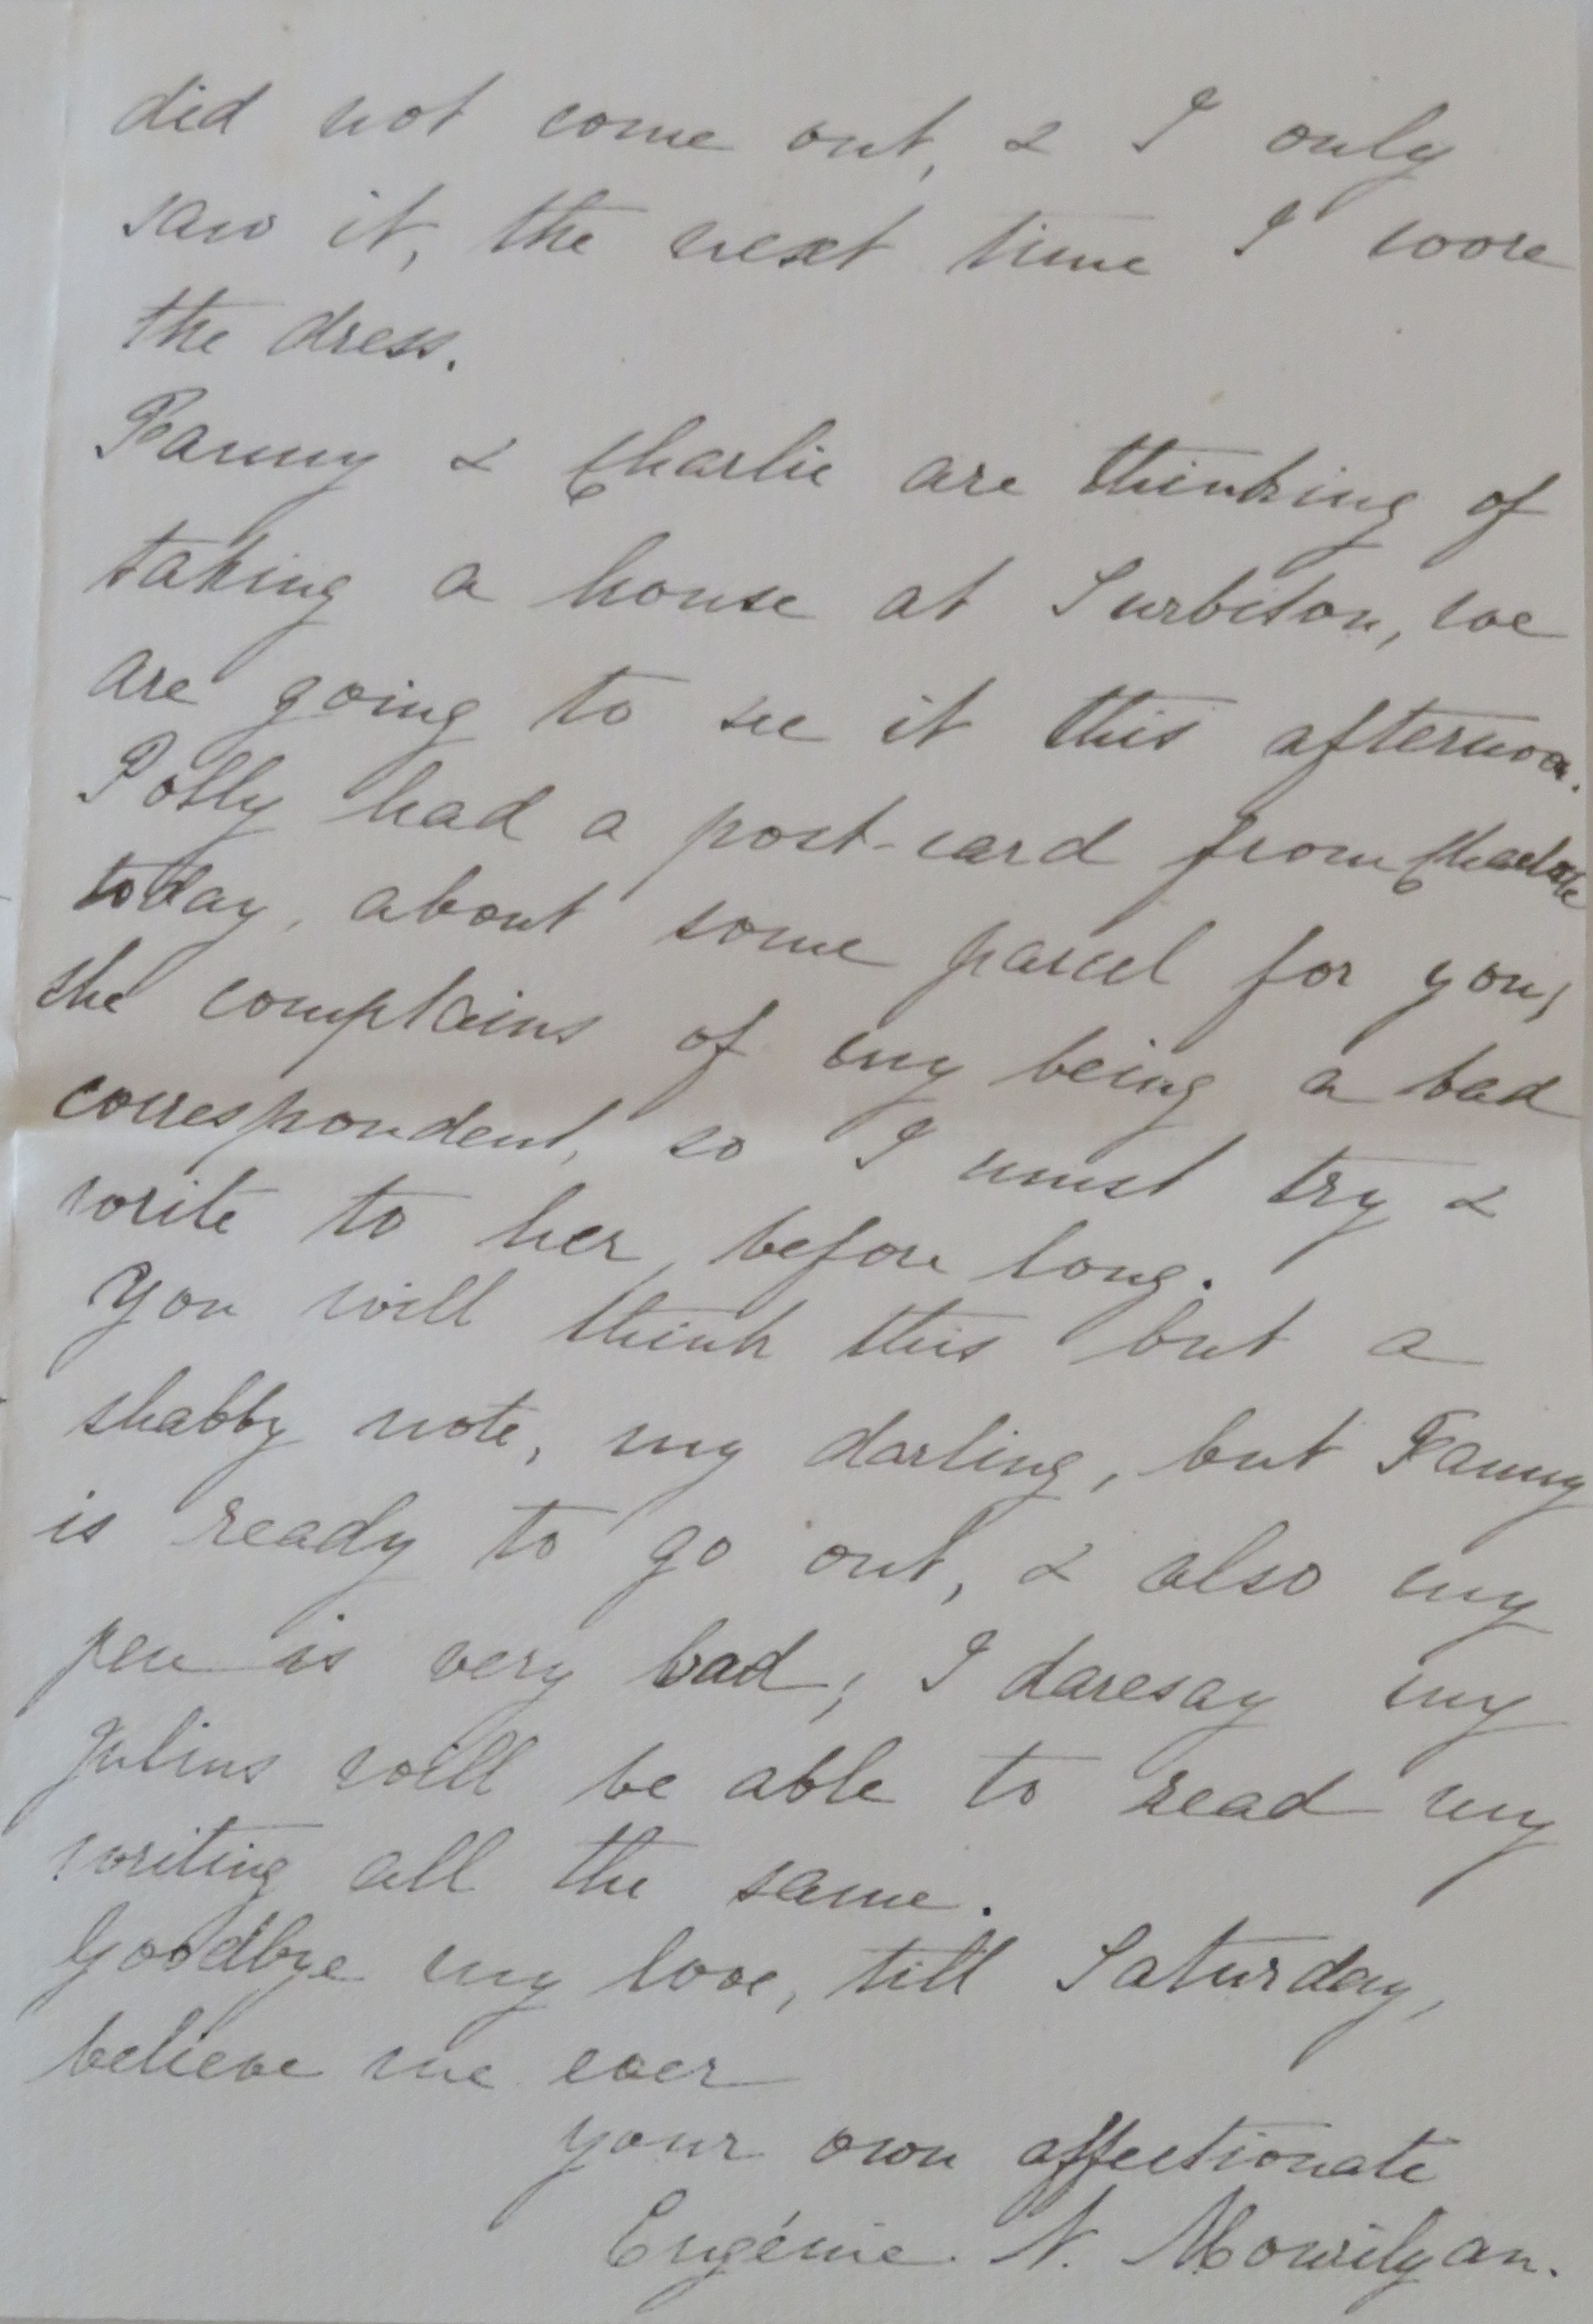 did not come out, & I only
saw it, the next time I wore
the dress.
Fanny & Charlie are thinking of
taking a house at Surbiton, we
are going to see it this afternoon.
Polly had a post-card from Charlotte
today, about some parcel for you,
she complains of my being a bad
correspondent, so I must try &
write to her, before long.
You will think this but a
shabby note, my darling, but Fanny
is ready to go out, & also my
pen is very bad; I daresay my
Julius will be able to read my
writing all the same.
Goodbye my love, till Saturday,
believe me ever
your own affectionate
Eugénie. N.